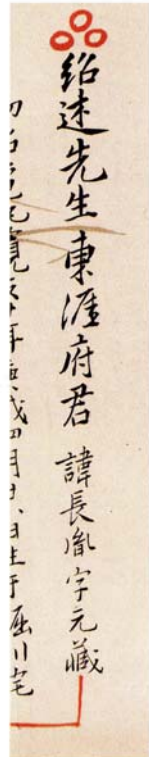 紹述先生東涯府君 諱長胤字元藏
寛文十年庚戌四月廿八日生于堀川宅